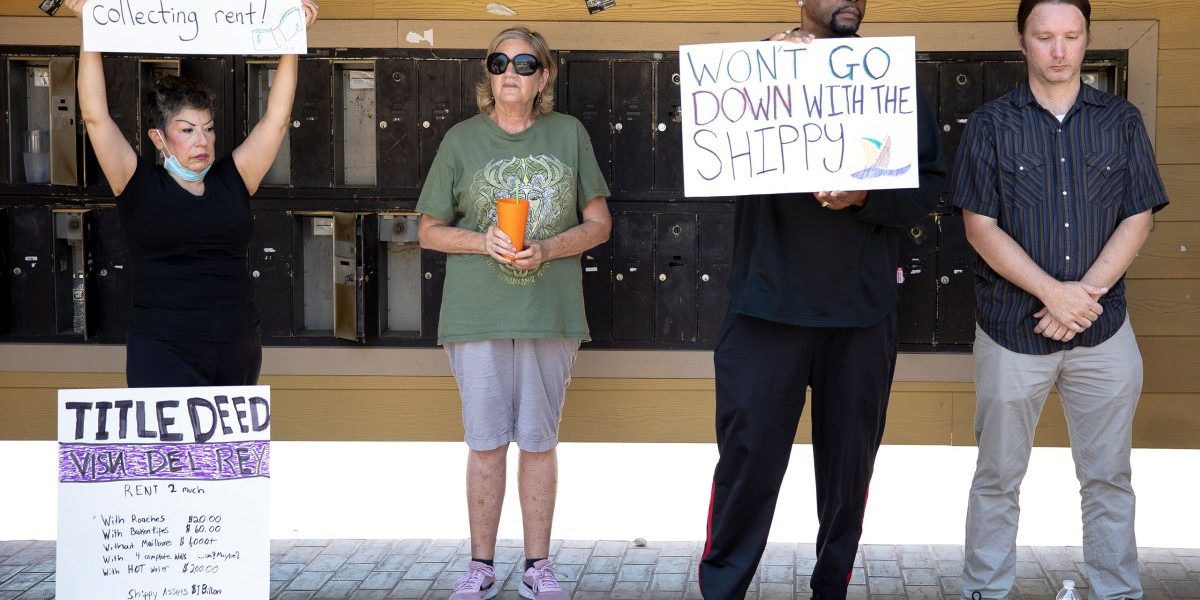 collecting rent!
WON'T GO
DOWN WITH THE
SHIPPY
TITLE DEED
VISTA DEL REY
RENT 2 much
With Roaches $20.00
With Broken Pipes $60.00
Without Mailboxes $1,000+
With 4 complete Walls ...un?(Maybe?)
With HOT Water $200.00
Shippy Assets $1 Billion